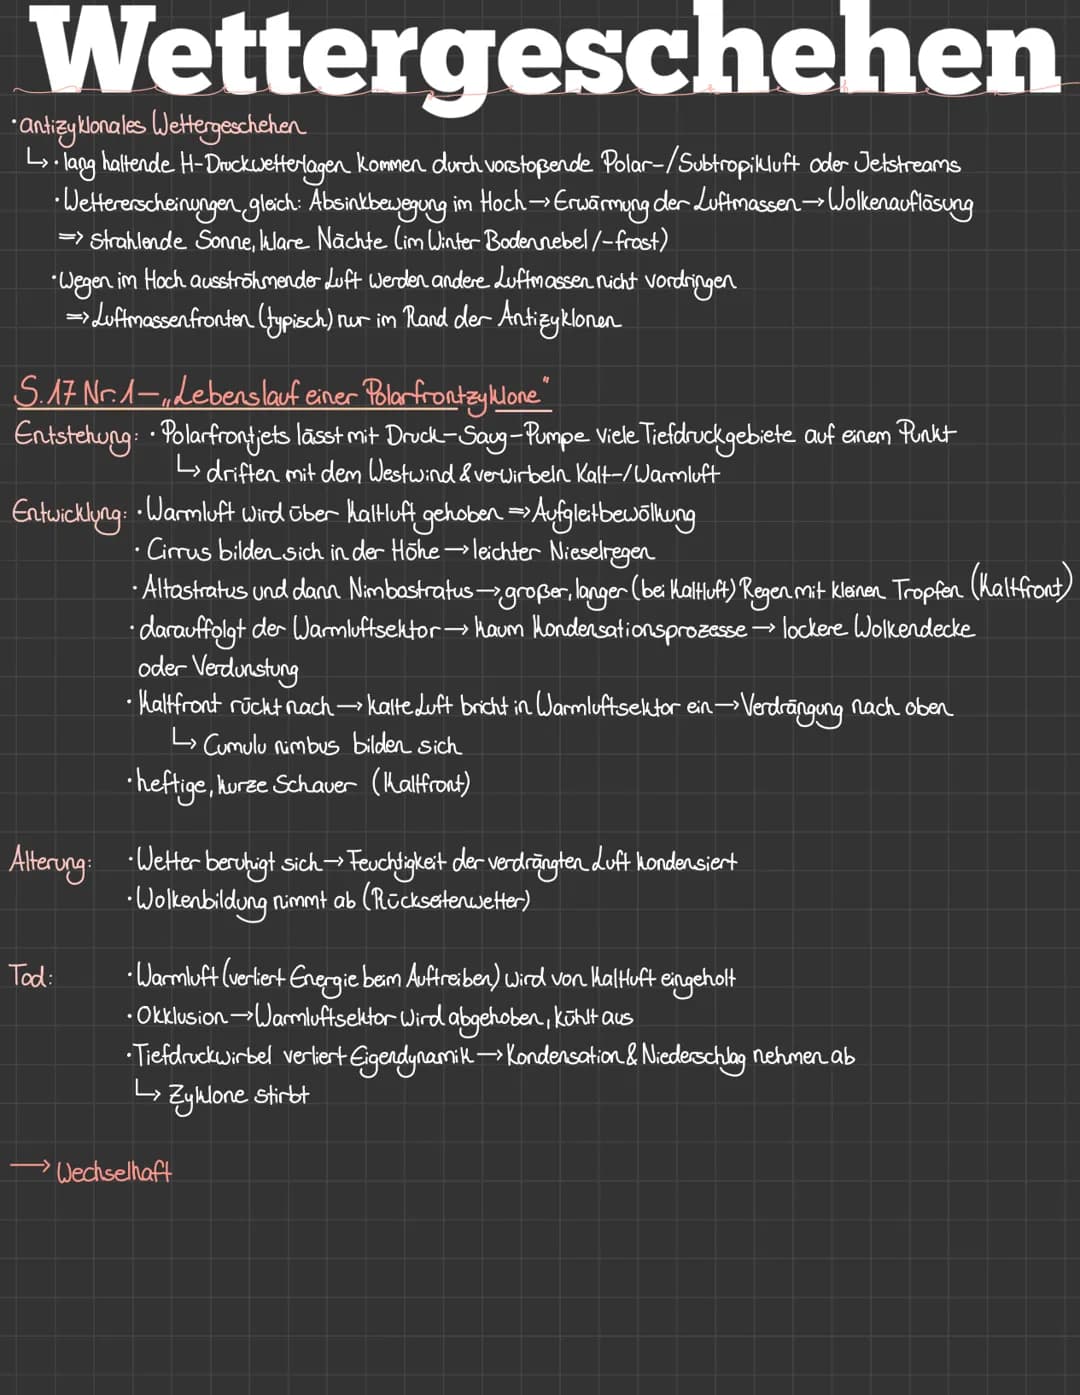 Wettergeschehen
· antizyklonales Wettergeschehen
↳ · lang haltende H-Druckwetterlagen kommen durch vorstoßende Polar-/Subtropikluft oder Jetstreams
· Wettererscheinungen gleich: Absinkbewegung im Hoch → Erwärmung der Luftmassen → Wolkenauflösung
=> strahlende Sonne, klare Nächte (im Winter Bodennebel/-frost)
· Wegen im Hoch ausströhmender Luft werden andere Luftmassen nicht vordringen
=> Luftmassenfronten (typisch) nur im Rand der Antizyklonen
S.17 Nr.1 – „Lebenslauf einer Polarfrontzyklone"
Entstehung: · Polarfrontjets lässt mit Druck-Saug-Pumpe viele Tiefdruckgebiete auf einem Punkt
↳ driften mit dem Westwind & verwirbeln Kalt-/Warmluft
Entwicklung: · Warmluft wird über Kaltluft gehoben => Aufgleitbewölkung
· Cirrus bilden sich in der Höhe → leichter Nieselregen
· Altastratus und dann Nimbostratus → großer, langer (bei Kaltluft) Regen mit kleinen Tropfen (Kaltfront)
· darauffolgt der Warmluftsektor → kaum Kondensationsprozesse → lockere Wolkendecke
oder Verdunstung
· Kaltfront rückt nach → kalte Luft bricht in Warmluftsektor ein → Verdrängung nach oben
↳ Cumulu nimbus bilden sich
· heftige, kurze Schauer (Kaltfront)
Alterung: · Wetter beruhigt sich → Feuchtigkeit der verdrängten Luft kondensiert
· Wolkenbildung nimmt ab (Rückseitenwetter)
Tod: · Warmluft (verliert Energie beim Auftreiben) wird von Kaltluft eingeholt
· Okklusion → Warmluftsektor wird abgehoben, kühlt aus
· Tiefdruckwirbel verliert Eigendynamik → Kondensation & Niederschlag nehmen ab
↳ Zyklone stirbt
→ Wechselhaft